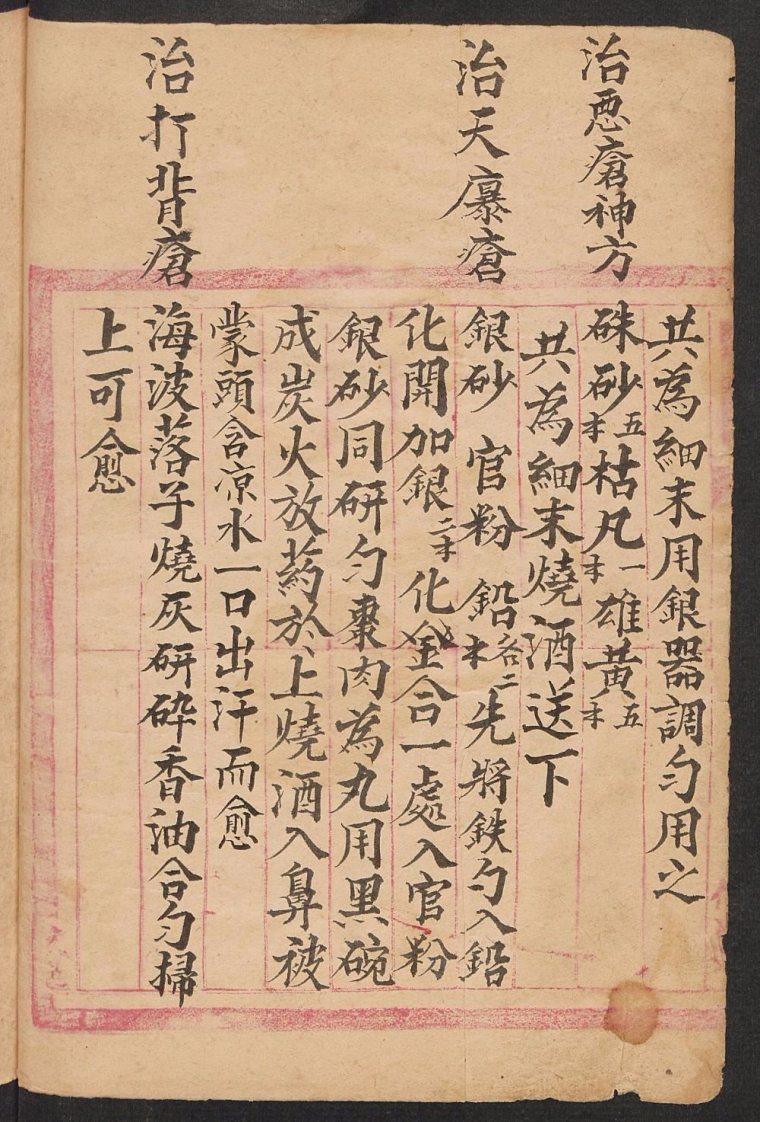 共為細末用銀器調勻用之
治悪瘡神方
硃砂五才枯凡一才雄黃五才
共為細末燒酒送下
治天𤺥瘡
銀砂 官粉 鉛各二才先將鉄勺入鉛
化開加銀二才化盡合一處入官粉
銀砂同研勻棗肉為丸用黑碗
成炭火放葯於上燒酒入鼻被
蒙頭含凉水一口出汗而愈
治打背瘡
海波落子燒灰研碎香油合勻掃
上可愈